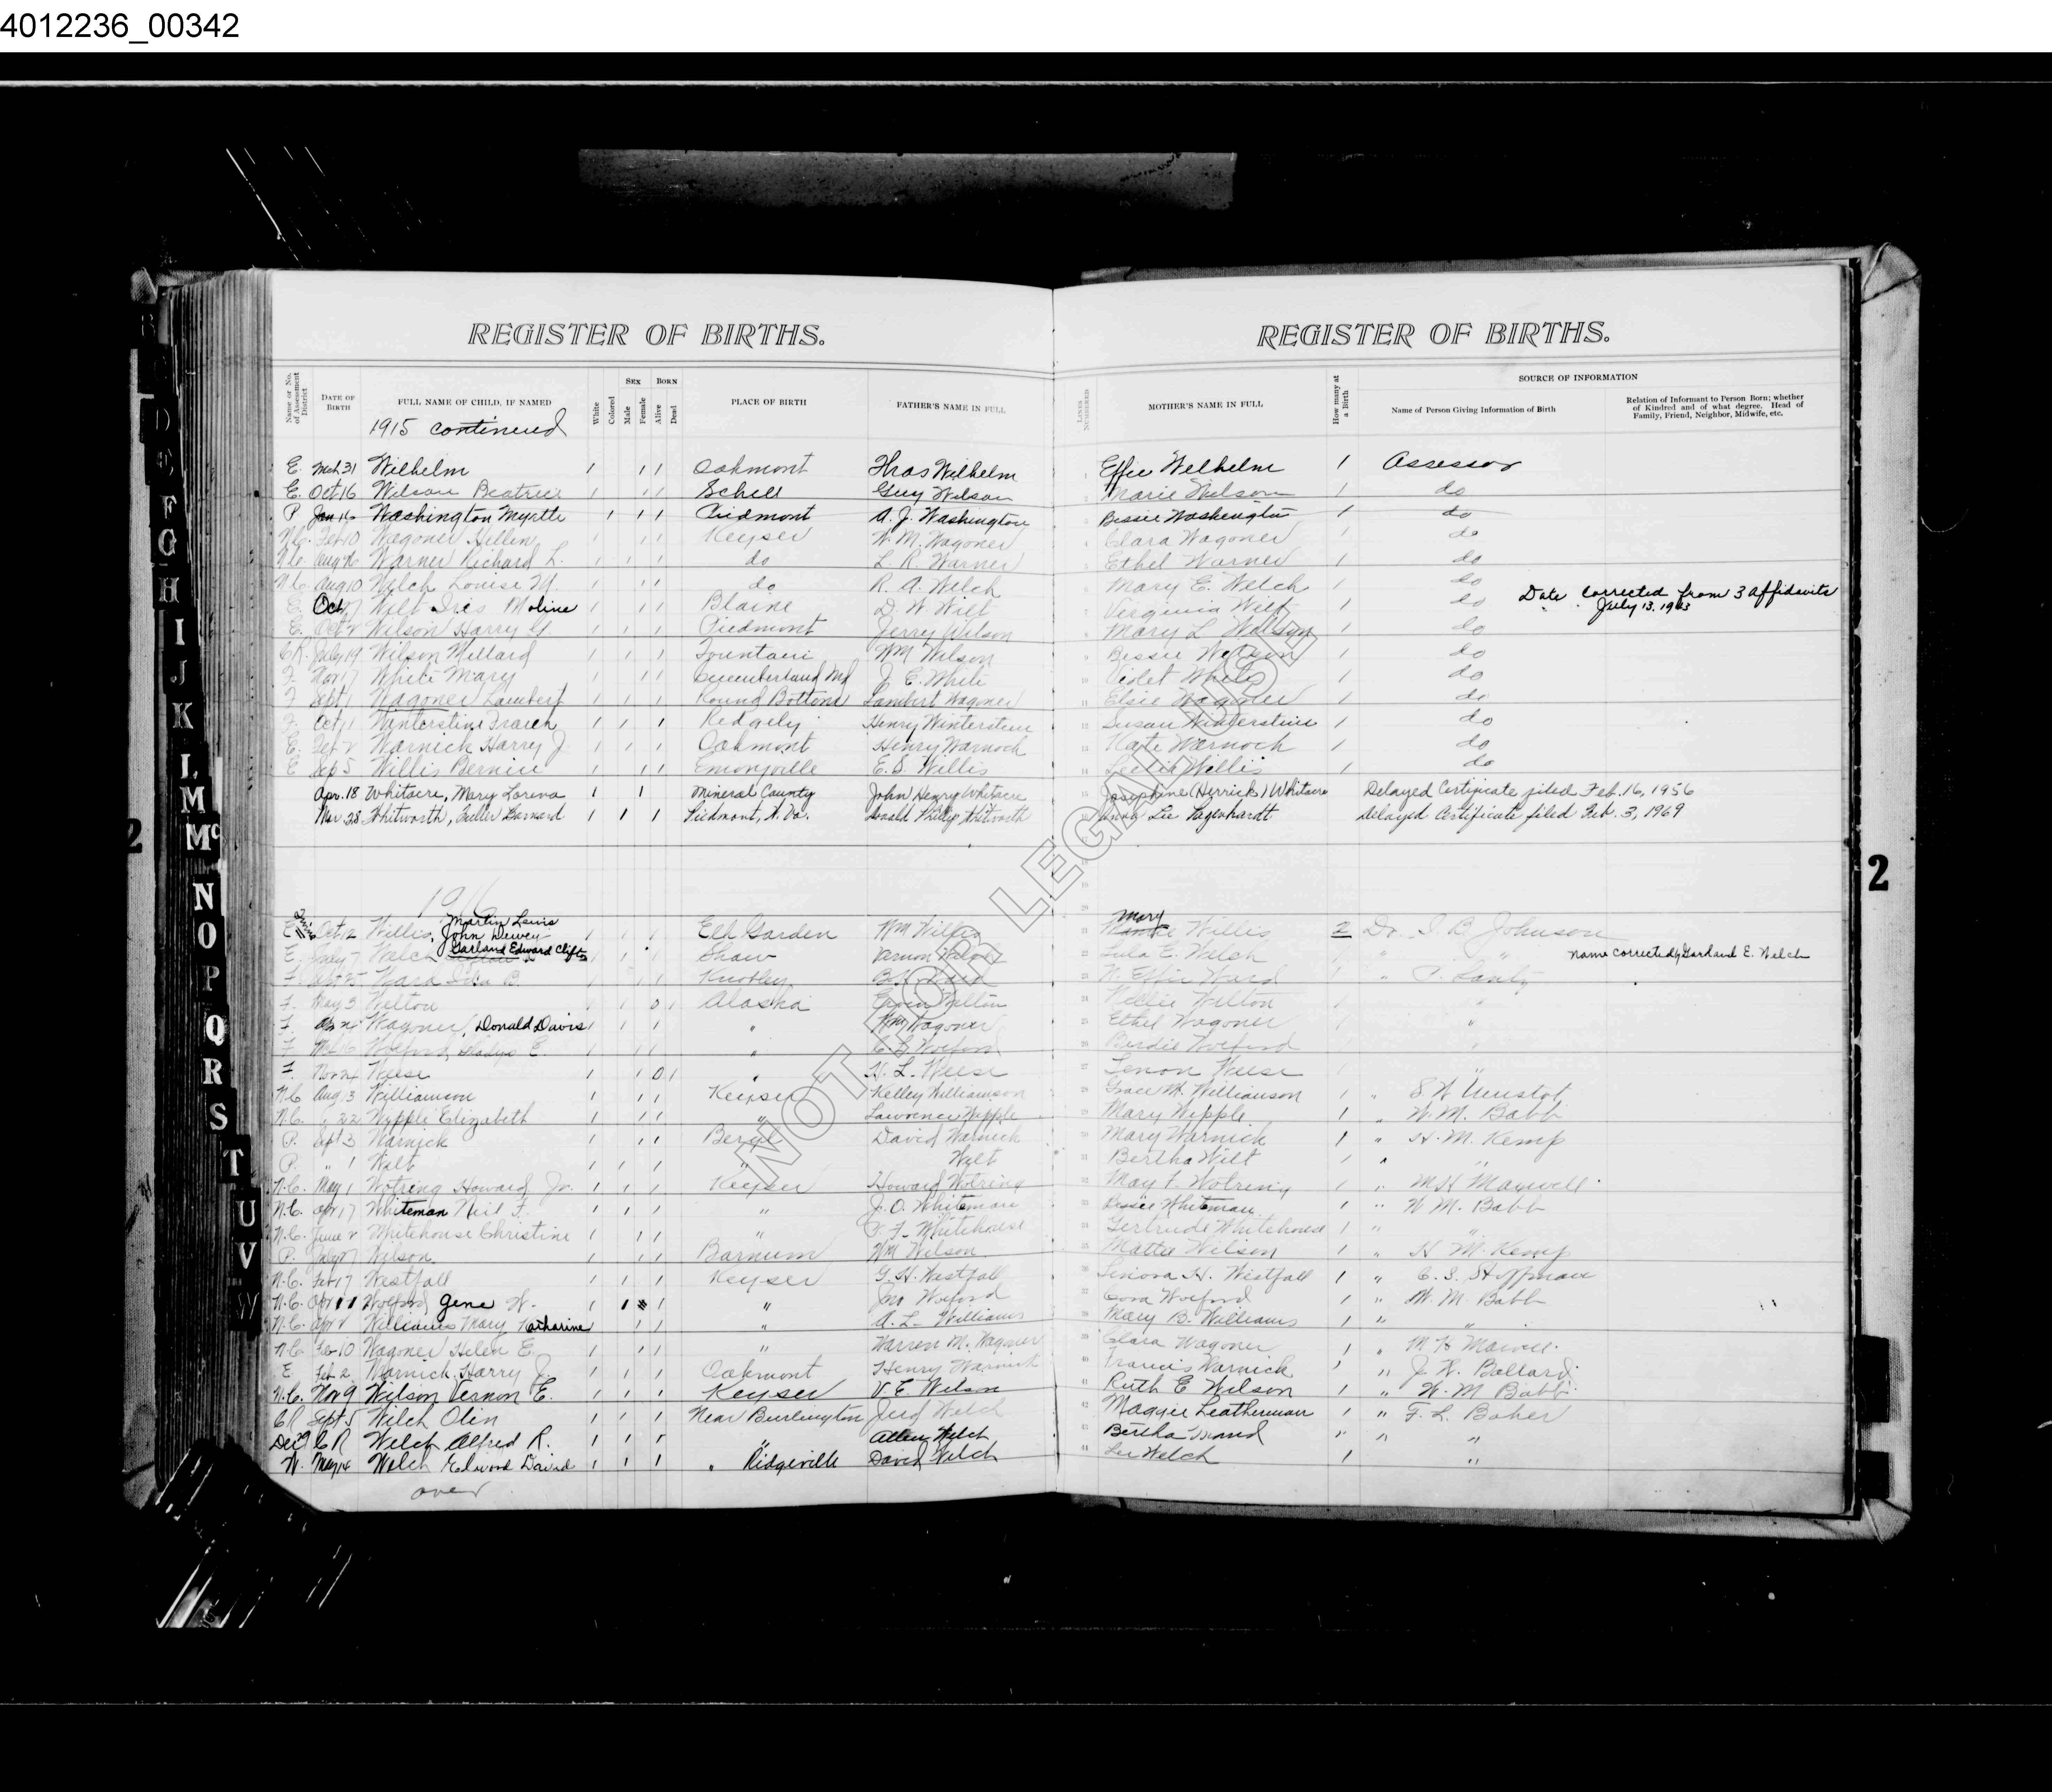 4012236_00342
REGISTER OF BIRTHS. REGISTER OF BIRTHS.
Name or No. of Assessment District
DATE OF BIRTH
FULL NAME OF CHILD, IF NAMED
White
Colored
SEX
Male
Female
BORN
Alive
Dead
PLACE OF BIRTH
FATHER'S NAME IN FULL
LINES NUMBERED
MOTHER'S NAME IN FULL
How many at a Birth
SOURCE OF INFORMATION
Name of Person Giving Information of Birth
Relation of Informant to Person Born; whether of Kindred and of what degree. Head of Family, Friend, Neighbor, Midwife, etc.
1915 continued
E. Mch 31 Wilhelm 1 1 1 Oakmont Thos Wilhelm Effie Wilhelm 1 Assessor
E. Oct 16 Wilson Beatrice 1 1 1 Schell Guy Wilson Marie Wilson 1 do
P Jan 16 Washington Myrtle 1 1 1 Piedmont A. J. Washington Bessie Washington 1 do
N.C. Feb 10 Wagoner 1 1 1 Keyser W. M. Wagoner Clara Wagoner 1 do
N.C. Aug Warner Richard L. 1 1 1 do L. R. Warner Ethel Warner 1 do
N.C. Aug 10 Welch Louise 1 1 1 do R. A. Welch Mary E. Welch 1 do
E. Oct 7 Wilt Iris Moline 1 1 1 Blaine D. W. Wilt Virginia Wilt 1 do Date corrected from 3 affidavits
July 13, 1963
E. Oct Wilson Harry G. 1 1 1 Piedmont Jerry Wilson Mary L Wilson 1 do
C.R. July 19 Wilson Millard 1 1 1 Fountain Wm Wilson Bessie Wilson 1 do
F. Nov 17 White Mary 1 1 1 Cumberland Md J. E. White Violet White 1 do
F Sept 1 Wagoner Lambert 1 1 1 Round Bottom Lambert Wagoner Elsie Wagoner 1 do
F. Oct 1 Winterstine 1 1 1 Ridgely Henry Winterstine Susan Winterstine 1 do
E. Feb 2 Warnick Harry J. 1 1 1 Oakmont Henry Warnock Kate Warnock 1 do
E Sep 5 Willis Bernice 1 1 1 Emoryville E. S. Willis Willis 1 do
Apr. 18 Whitacre, Mary Lorena 1 1 Mineral County John Henry Whitacre Josephine (Herrick) Whitacre Delayed Certificate filed Feb. 16, 1956
Mar 28 Whitworth, Fuller Barnard 1 1 1 Piedmont, W. Va. Donald Philip Whitworth Anna Lee Fazenhardt Delayed Certificate filed Feb. 3, 1969
1916
E Twins Oct 12 Willis, Martin Lewis
John Dewey Elk Garden Wm Willis Mary Willis 2 Dr. I. B. Johnson
E. 7 Welch Garland Edward Clifton Shaw Vernon Welch Lula E. Welch " " Name corrected Garland E. Welch
F. Oct 25 Ward B. Knobley Ward N. Effie Ward " P. Lantz
F. May 3 Welton 0 1 Alaska Welton Nellie Welton "
F. Wagoner, Donald Davis 1 1 1 " Wm Wagoner Ethel Wagoner "
F Wolford, Gladys E. " Wolford Birdie Wolford "
F. Nov Weese 1 1 0 1 " H. L. Weese Lenon Weese "
N.C Aug 13 Williamson 1 1 1 Keyser Kelley Williamson Grace W. Williamson 1 " S W Umstot
N.C. " 22 Wipple Elizabeth 1 1 1 " Lawrence Wipple Mary Wipple 1 " W. M. Babb
P. Sept 3 Warnick 1 1 1 Beryl David Warnick Mary Warnick 1 " H. M. Kemp
P. " 1 Wilt 1 1 1 " Wilt Bertha Wilt 1 " "
N.C. May 1 Wotring Howard Jr. 1 1 1 Keyser Howard Wotring May F. Wotring 1 " M H Maxwell
N.C. Apr 17 Whiteman Neil F. 1 1 1 " J. O. Whiteman Bessie Whiteman 1 " W M. Babb
N.C. June 2 Whitehouse Christine 1 1 1 " F. Whitehouse Gertrude Whitehouse 1 " "
P. July Wilson 1 1 1 Barnum Wm Wilson Mattie Wilson 1 " H. M. Kemp
N.C. Feb 17 Westfall 1 1 1 Keyser G. H. Westfall Lenora H. Westfall 1 " C. S. Hoffman
N.C. Apr 11 Wolford Gene W. 1 1 1 " Jno Wolford Cora Wolford 1 " W. M. Babb
N.C. Apr Williams Mary Katharine 1 1 " A. L. Williams Mary B. Williams 1 " "
N.C Feb 10 Wagoner Helen E. 1 1 1 " Warren M. Wagoner Clara Wagoner 1 " M H Maxwell
E Feb 2 Warnick Harry J. 1 1 1 Oakmont Henry Warnick Francis Warnick 1 " J. W. Bollard
N.C. Nov 9 Wilson Vernon E. 1 1 1 Keyser V. E. Wilson Ruth E Wilson 1 " W. M Babb
C R Sept 5 Welch Olin 1 1 1 Near Burlington Jud Welch Maggie Leatherman 1 " F. L. Baker
Dec 9 C R Welch Alfred R. 1 1 1 " Allen Welch Bertha " "
W. May 14 Welch Edward David 1 1 1 " Ridgeville David Welch Lee Welch 1 "
over
B D E F G H I J K L M Mc N O P Q R S T U V W
2
2
NOT FOR LEGAL USE